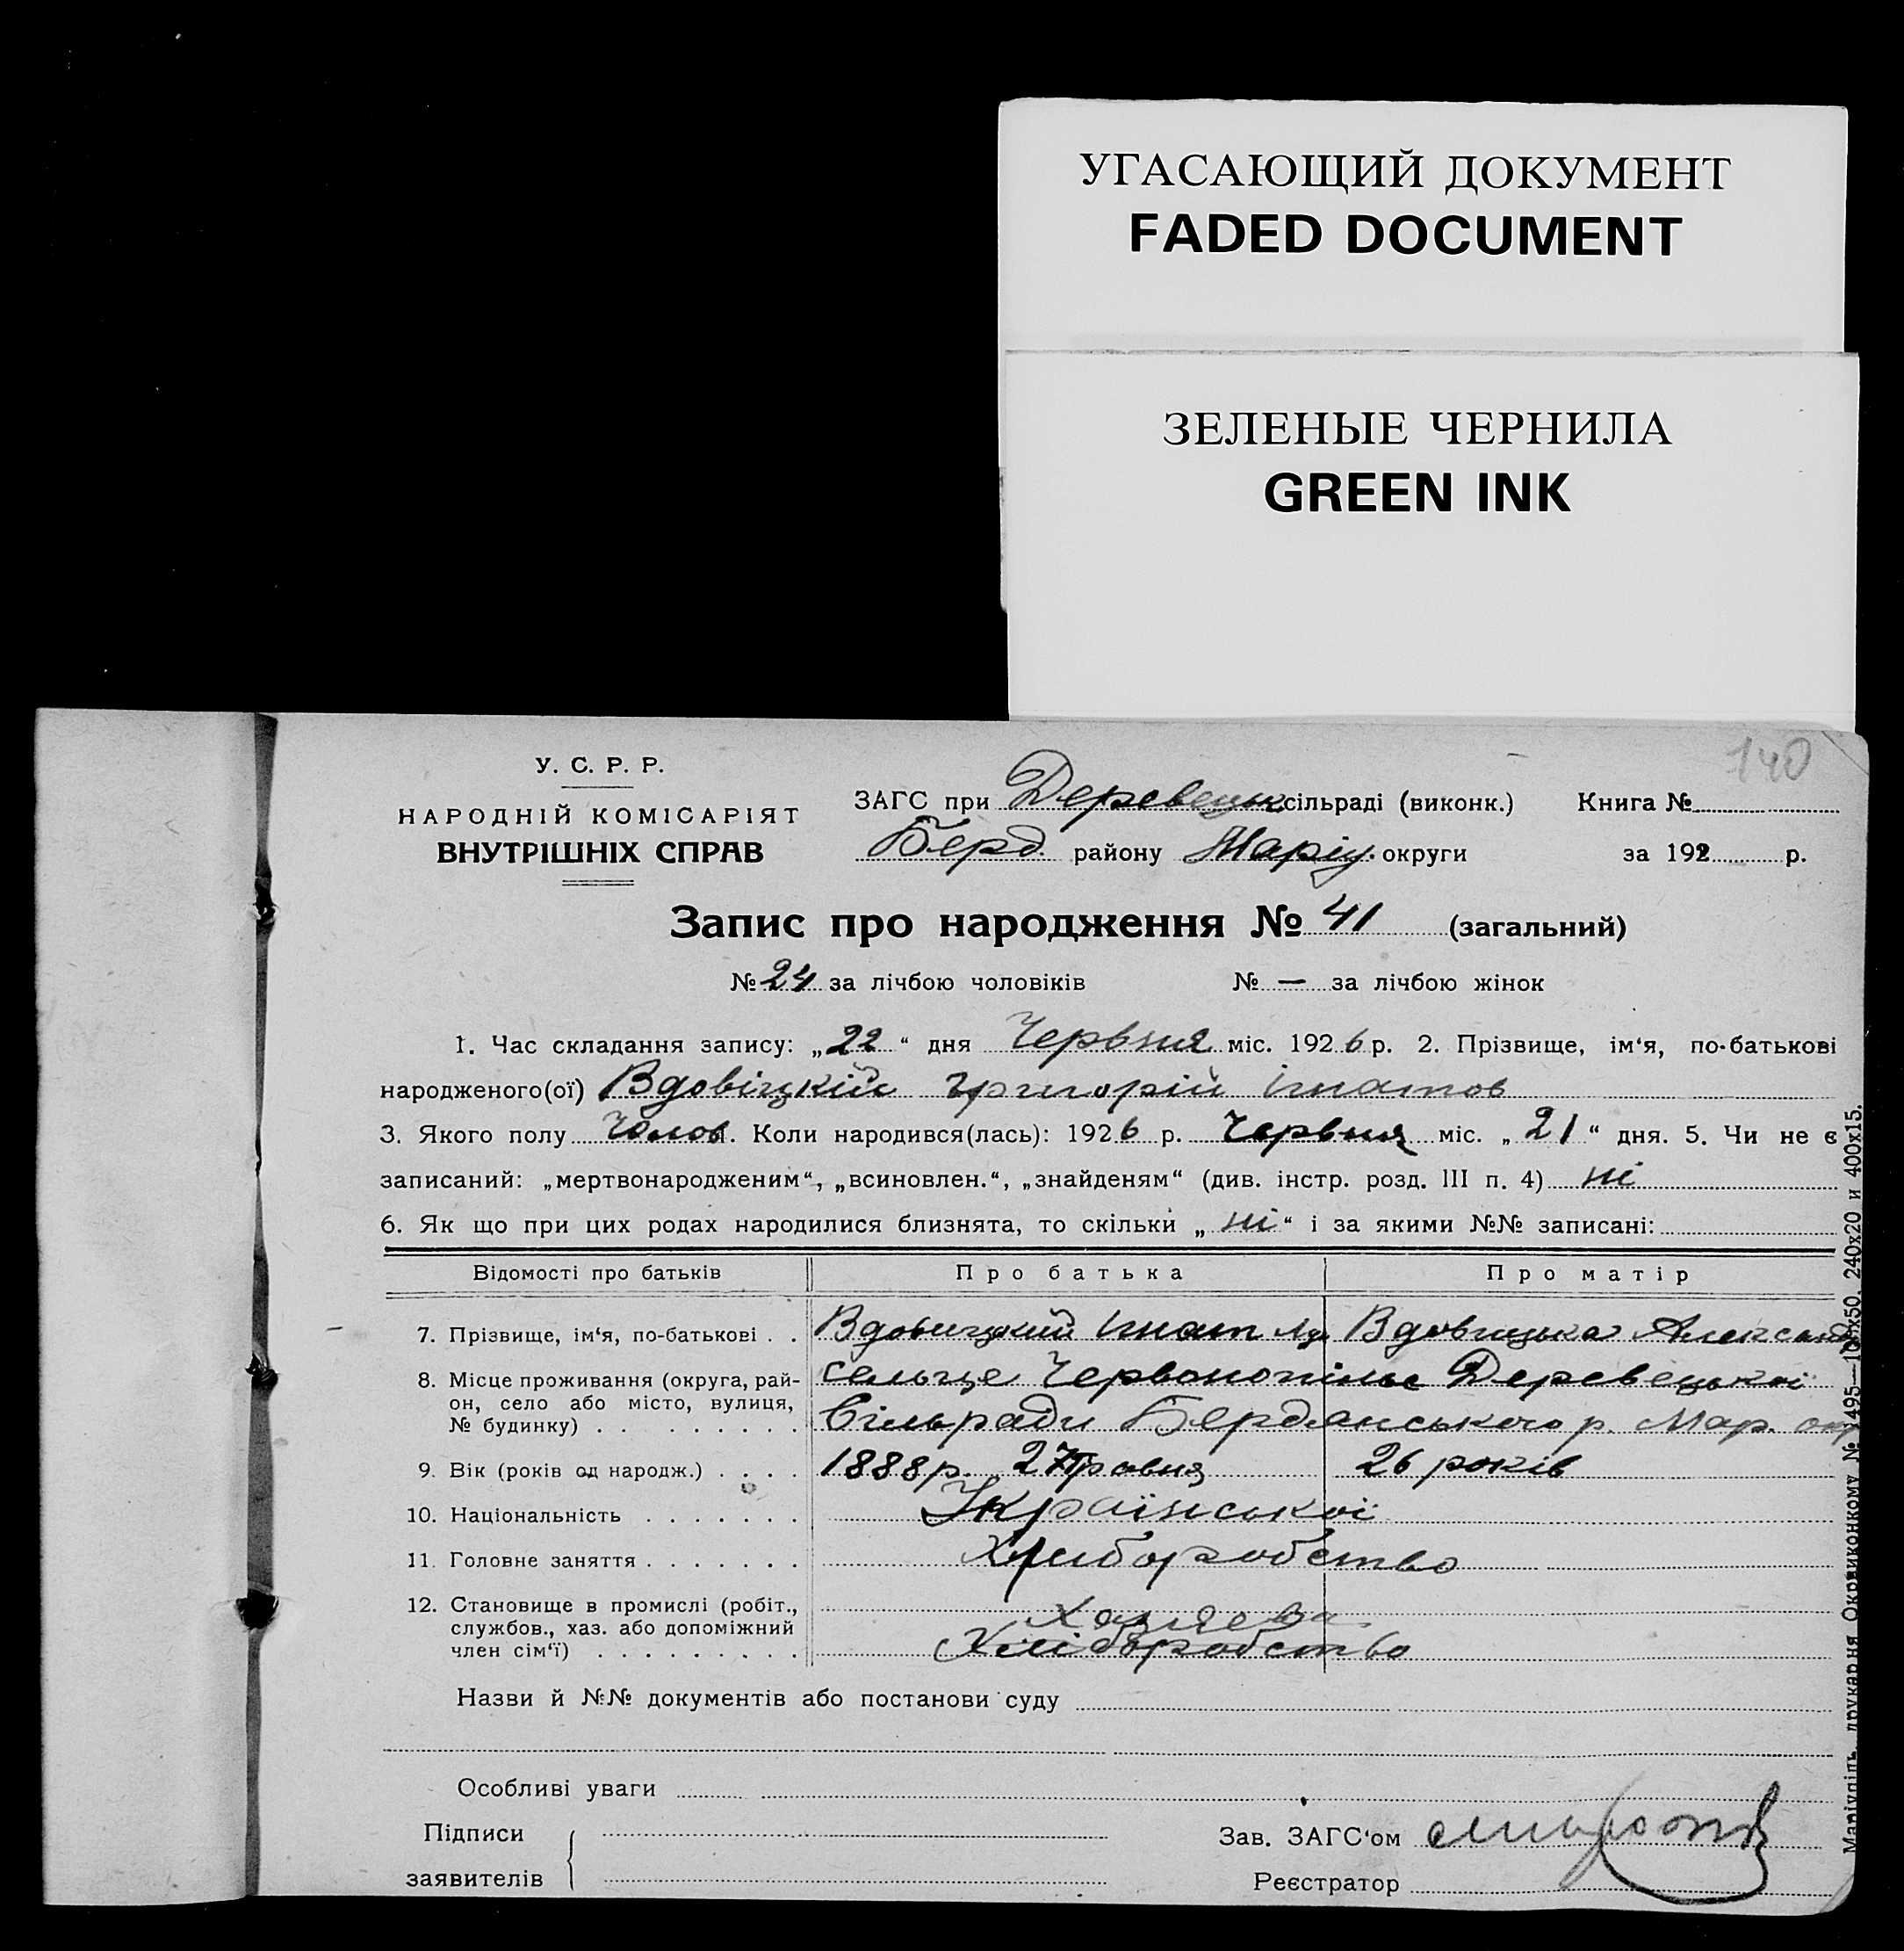 УГАСАЮЩИЙ ДОКУМЕНТ
FADED DOCUMENT
ЗЕЛЕНЫЕ ЧЕРНИЛА
GREEN INK
140
У. С. Р. Р.
НАРОДНІЙ КОМІСАРІЯТ
ВНУТРІШНІХ СПРАВ
ЗАГС при Деревецьк сільраді (виконк.) Книга №
Берд. району Маріу. округи за 192 р.
Запис про народження № 41 (загальний)
№ 24 за лічбою чоловіків № — за лічбою жінок
1. Час складання запису: „22“ дня Червня міс. 1926 р. 2. Прізвище, ім‘я, по-батькові
народженого(ої) Вдовіцкій Григорій Ігнатов
3. Якого полу Чолов. Коли народився(лась): 1926 р. Червня міс. „21“ дня. 5. Чи не є
записаний: „мертвонародженим“, „всиновлен.“, „знайденям“ (див. інстр. розд. III п. 4) ні
6. Як що при цих родах народилися близнята, то скільки „ні“ і за якими №№ записані:
Відомості про батьків Про батька Про матір
7. Прізвище, ім‘я, по-батькові . . Вдовицький Ігнат Вдовицька Александ
8. Місце проживання (округа, рай-
он, село або місто, вулиця,
№ будинку) . . . . . . . .
сельце Червонопілье Деревецької
Сільради Бердянського р. Мар. окр
9. Вік (років од народж.) . . . . 1888 р. 27 Травня 26 років
10. Національність . . . . . . . Української
11. Головне заняття . . . . . . . Хлиборобство
12. Становище в промислі (робіт.,
службов., хаз. або допоміжний
член сім‘ї) . . . . . . . . .
Хліборобство
Назви й №№ документів або постанови суду
Особливі уваги
Підписи
заявителів
Зав. ЗАГС‘ом
Реєстратор
Маріупіль, друкарня Окрвиконкому № 1495—100х50. 240х20 и 400х15.